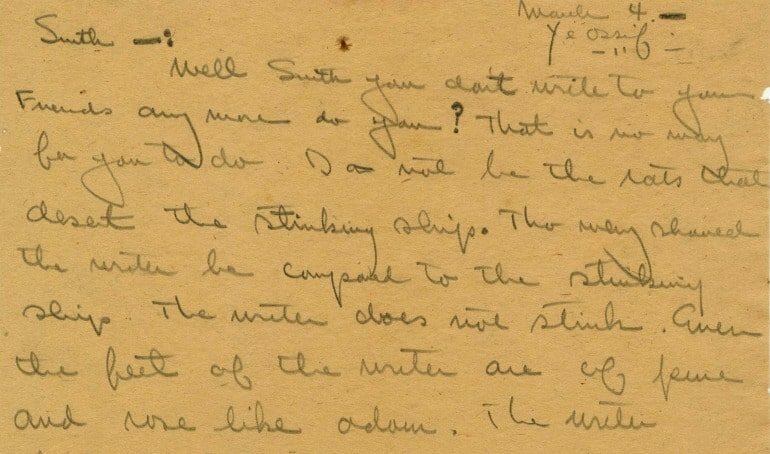 March 4. —
Ye Ossif
Smith —:
Well Smith you don't write to your
Friends any more do you? That is no way
for you to do. Do not be the rats that
desert the stinking ship. Tho why should
the writer be compared to the stinking
ship. The writer does not stink. Even
the feet of the writer are of pure
and rose like odour. The writer